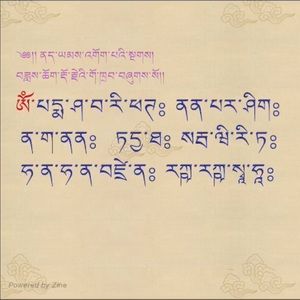 ༄།། ནད་ཡམས་འགོག་པའི་སྔགས།
བཟླས་ཆོག་རྡོ་རྗེའི་གོ་ཁྲབ་བཞུགས་སོ།།
ཨོཾ་པདྨ་ཤ་བ་རི་ཕཊ༔ ནན་པར་ཤིག༔
ན་ག་ནན༔ ཏདྱ་ཐ༔ སརྦ་ཝི་རི་ཏ༔
ཧ་ན་ཧ་ན་བཛྲེ་ན༔ རཀྵ་རཀྵ་སྭཱ་ཧཱ༔
Powered by Zine